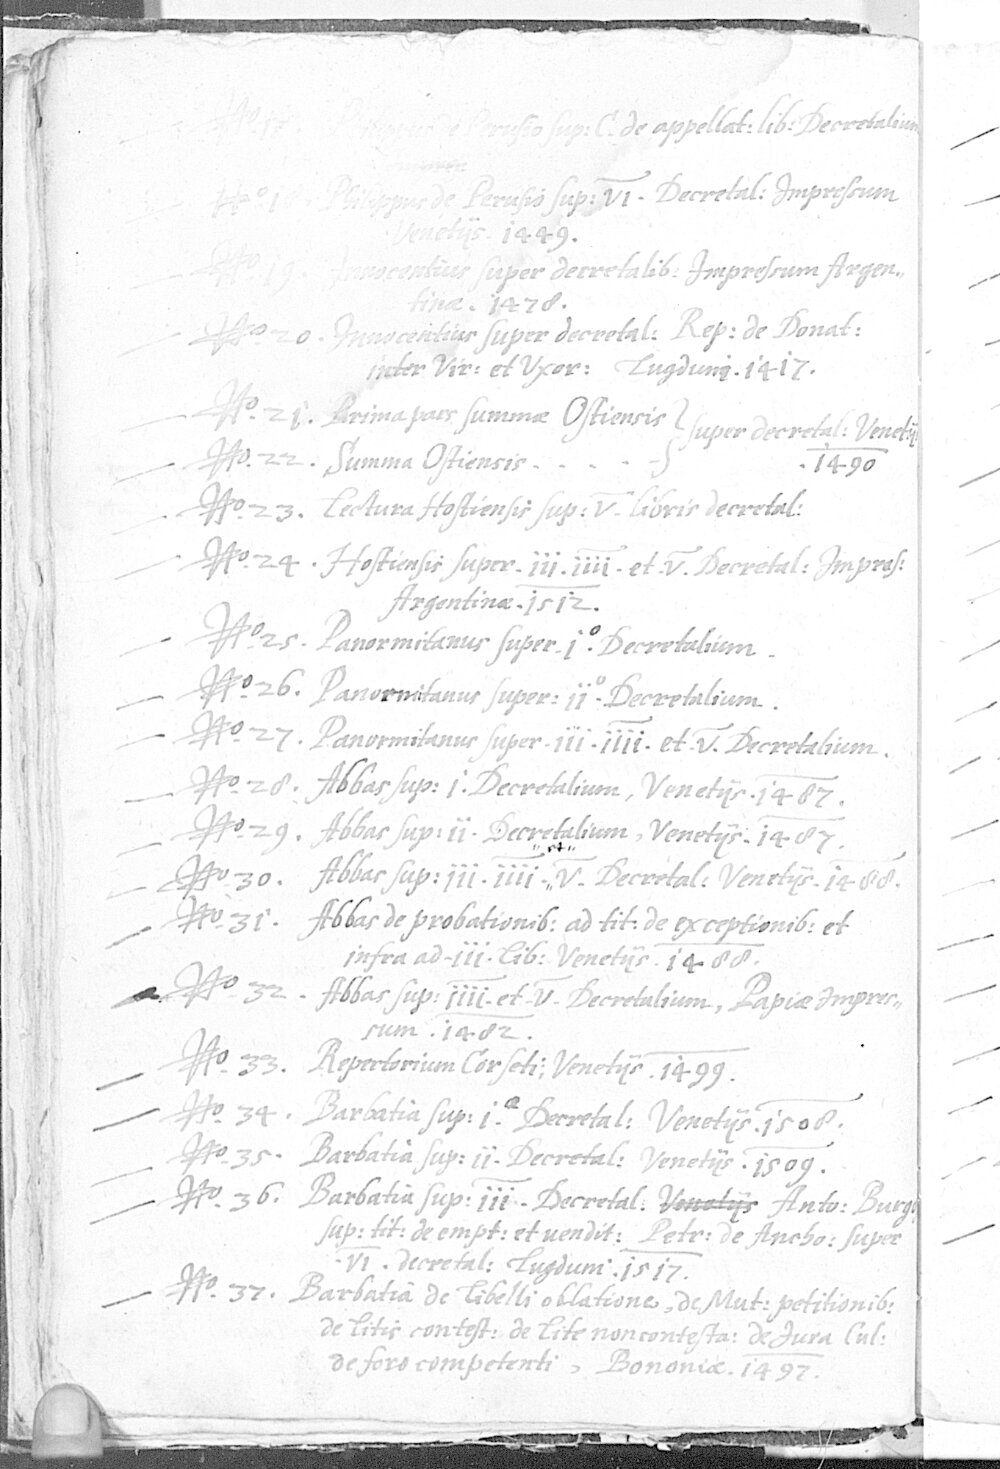 No 17. Philippus de Perusio sup: C. de appellat: lib: Decretalium
No 18 Philippus de Perusio sup: VI - Decretal: Impressum
Venetijs. 1449.
No 19. Innocentius super decretalib: Impressum Argen„
tinæ. 1478.
No 20. Innocentius super decretal: Rep: de Donat:
inter Vir: et Vxor: Lugduni. 1417.
No. 21. Prima pars summæ Ostiensis } super decretal: Venetijs
No. 22. Summa Ostiensis - - - - - } . 1490
No. 23. Lectura Hostiensis sup: V. libris decretal:
No. 24. Hostiensis super - iii. iiii. et. V. Decretal: Impres:
Argentinæ. 1512.
No. 25. Panormitanus super - i.o Decretalium -
No. 26. Panormitanus super: ii.o Decretalium.
No. 27. Panormitanus super - iii. iiii. et. V. Decretalium.
No. 28. Abbas sup: i. Decretalium, Venetijs. 1487.
No. 29. Abbas sup: ii. Decretalium, Venetijs. 1487.
No. 30. Abbas sup: iii. iiii - „et„ V. Decretal: Venetijs. 1488.
No. 31. Abbas de probationib: ad tit: de exceptionib: et
infra ad iii. Lib: Venetijs. 1488.
No. 32. Abbas sup: iiii. et. V. Decretalium, Papiæ Impres„
sum. 1482.
No. 33. Repertorium Corseti; Venetijs. 1499.
No. 34. Barbatia sup: i.a Decretal: Venetijs. 1508.
No. 35. Barbatia sup: ii. Decretal: Venetijs. 1509.
No. 36. Barbatia sup: iii. Decretal: Venetijs Anto: Burg
sup: tit: de empt: et uendit: Petr: de Ancho: super
VI. decretal: Lugduni. 1517.
No. 37. Barbatia de Libelli oblatione, de Mut: petitionib:
de litis contest: de lite non contesta: de Jura Cul:
de foro competenti, Bononiæ. 1497.